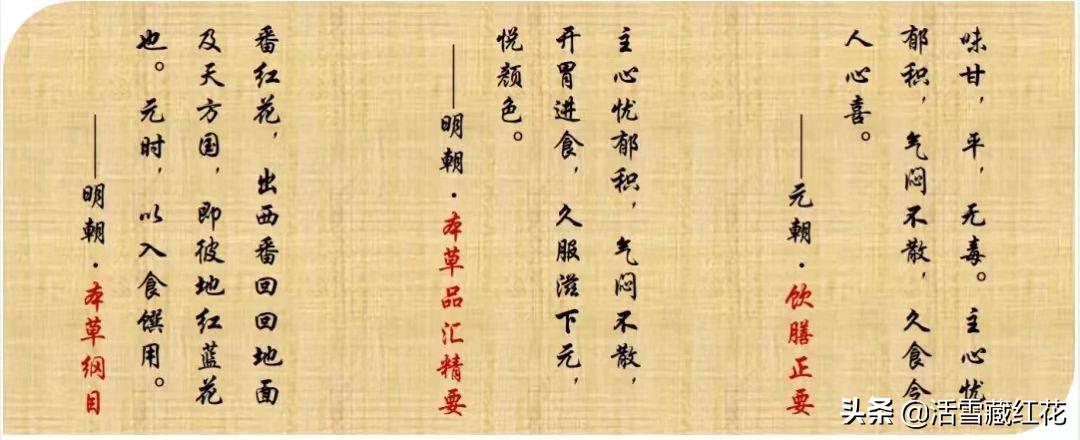 味甘，平，无毒。主心忧
郁积，气闷不散，久食令
人心喜。
——元朝·饮膳正要
主心忧郁积，气闷不散，
开胃进食，久服滋下元，
悦颜色。
——明朝·本草品汇精要
番红花，出西番回回地面
及天方国，即彼地红蓝花
也。元时，以入食馔用。
——明朝·本草纲目
头条 @活雪藏红花